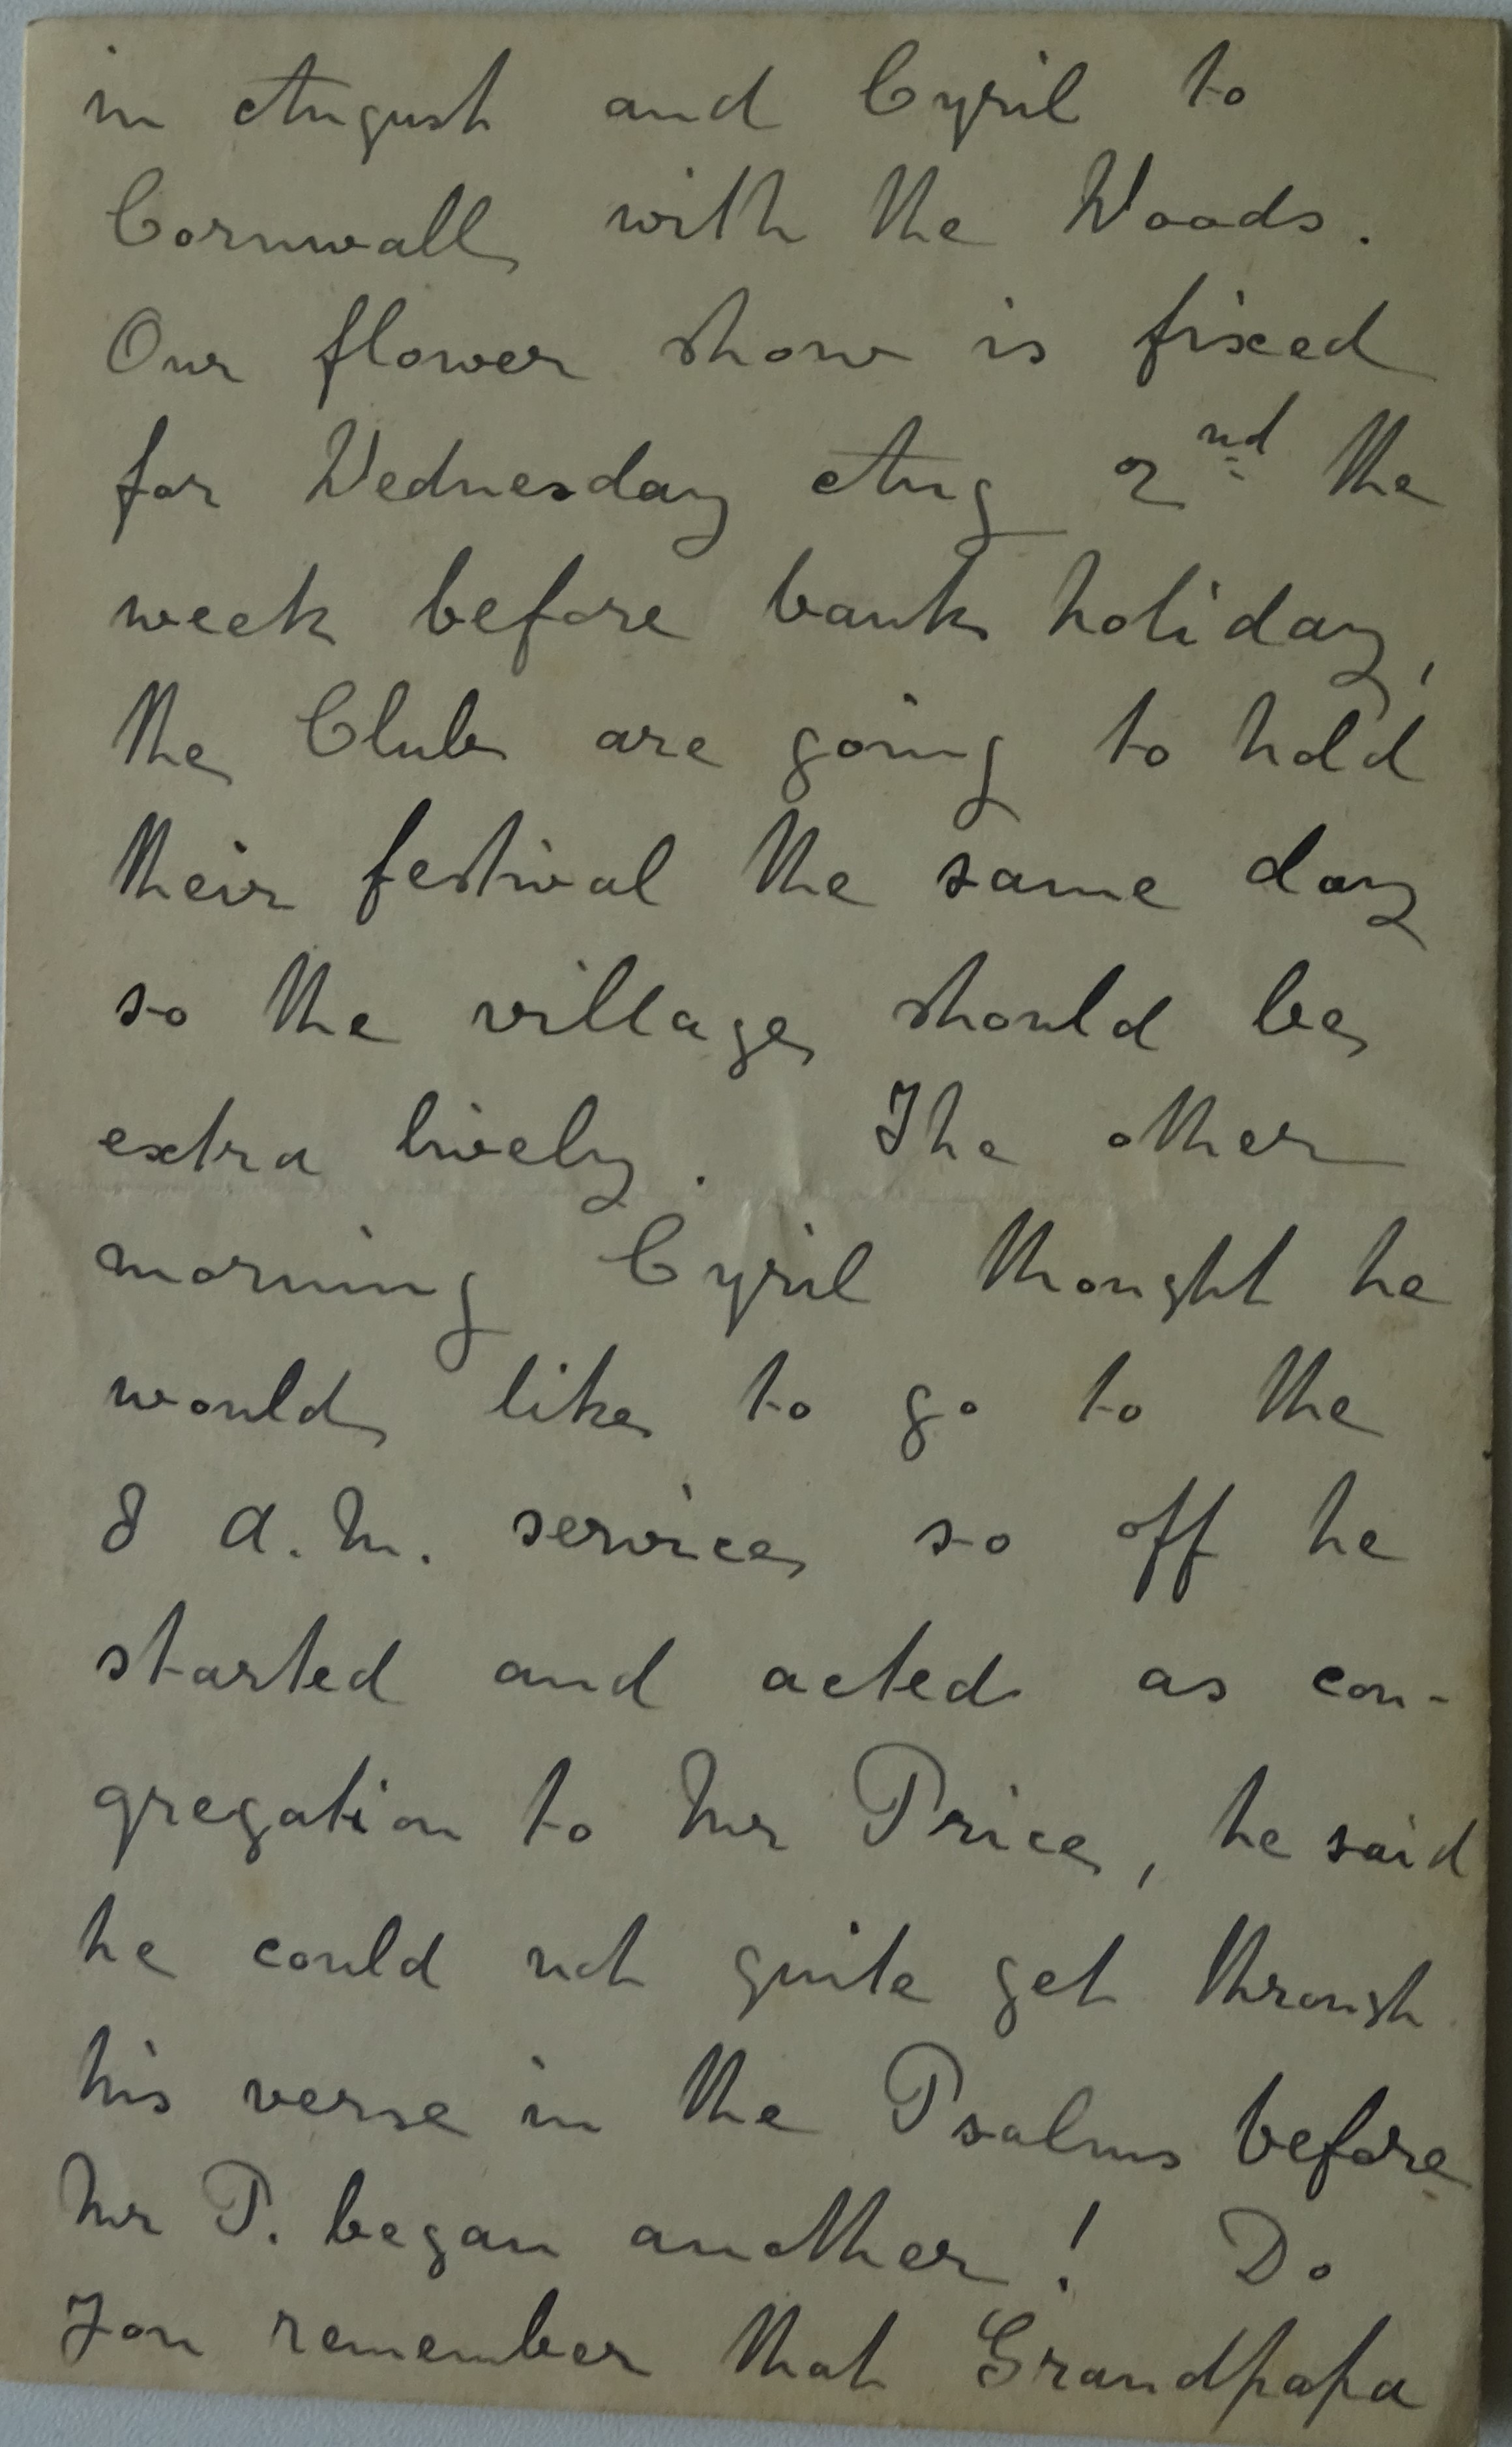 in August and Cyril to
Cornwall with the Woods.
Our flower show is fixed
for Wednesday Aug 2nd the
week before bank holiday,
the Club are going to hold
their festival the same day
so the village should be
extra lively. The other
morning Cyril thought he
would like to go to the
8 a.m. service so off he
started and acted as con-
gregation to Mr Price, he said
he could not quite get through
his verse in the Psalms before
Mr P. began another! Do
you remember that Grandpapa